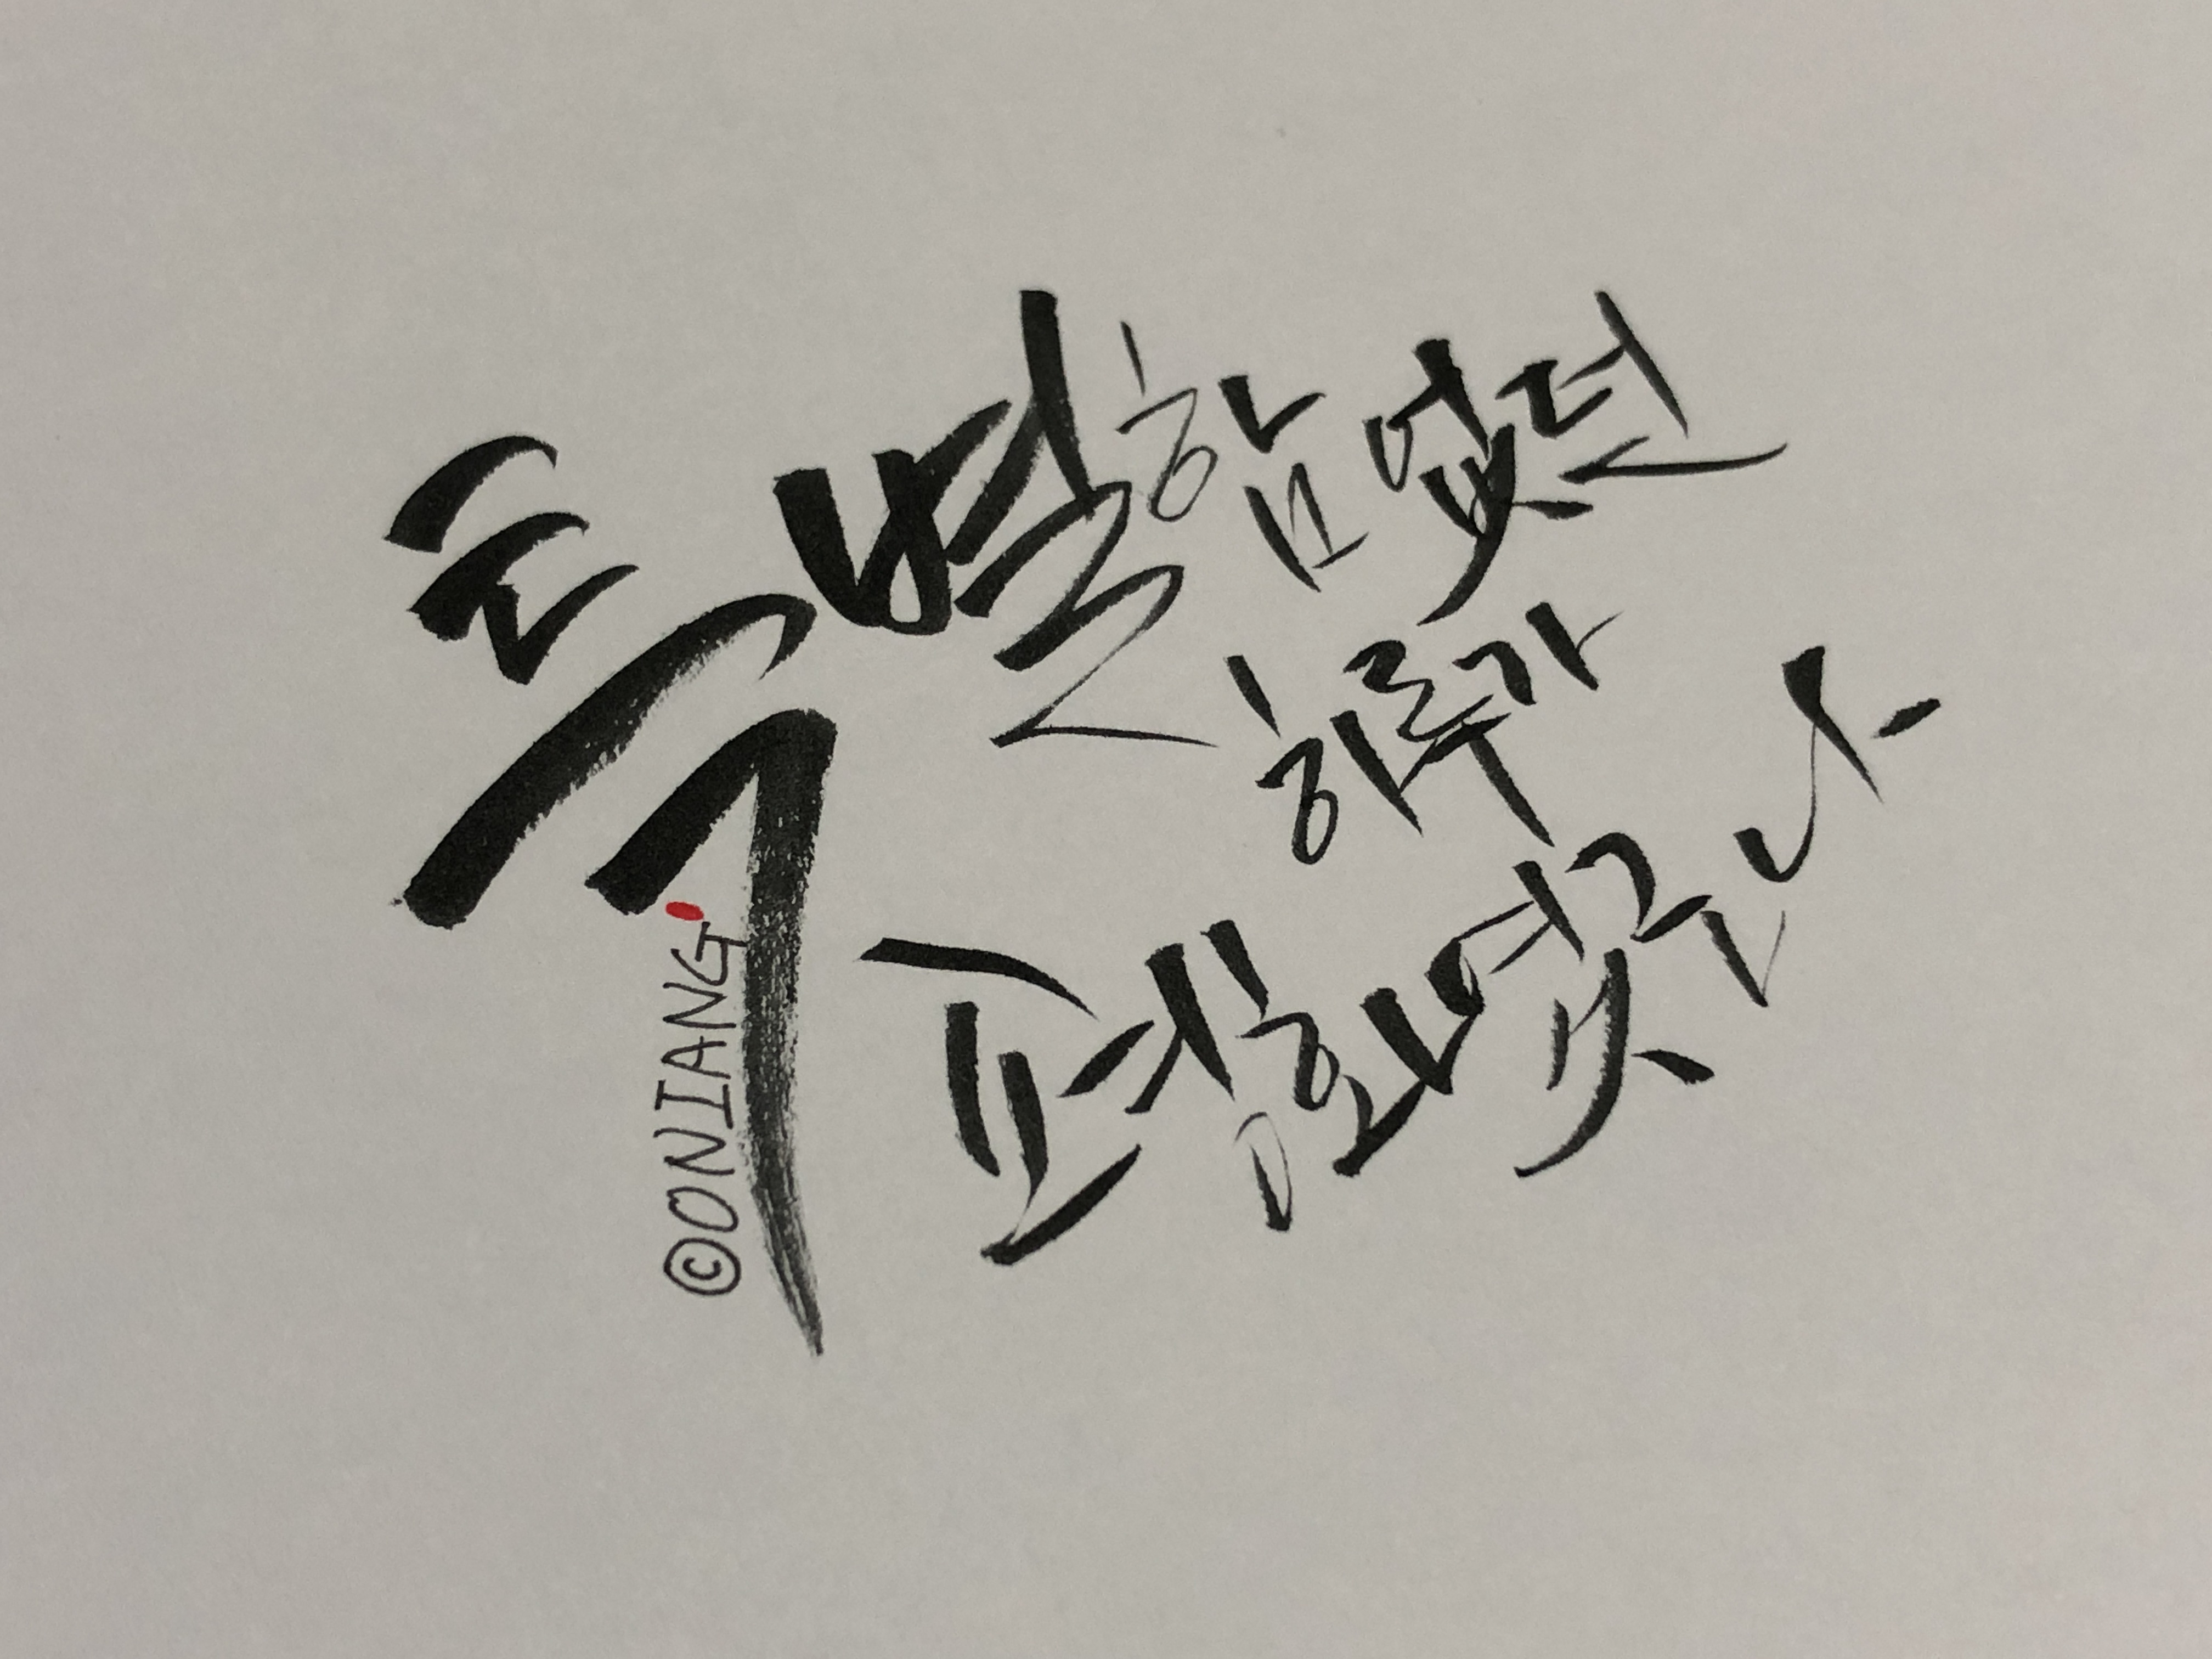 특별함 없던
하루가
평화였구나
©ONJANG